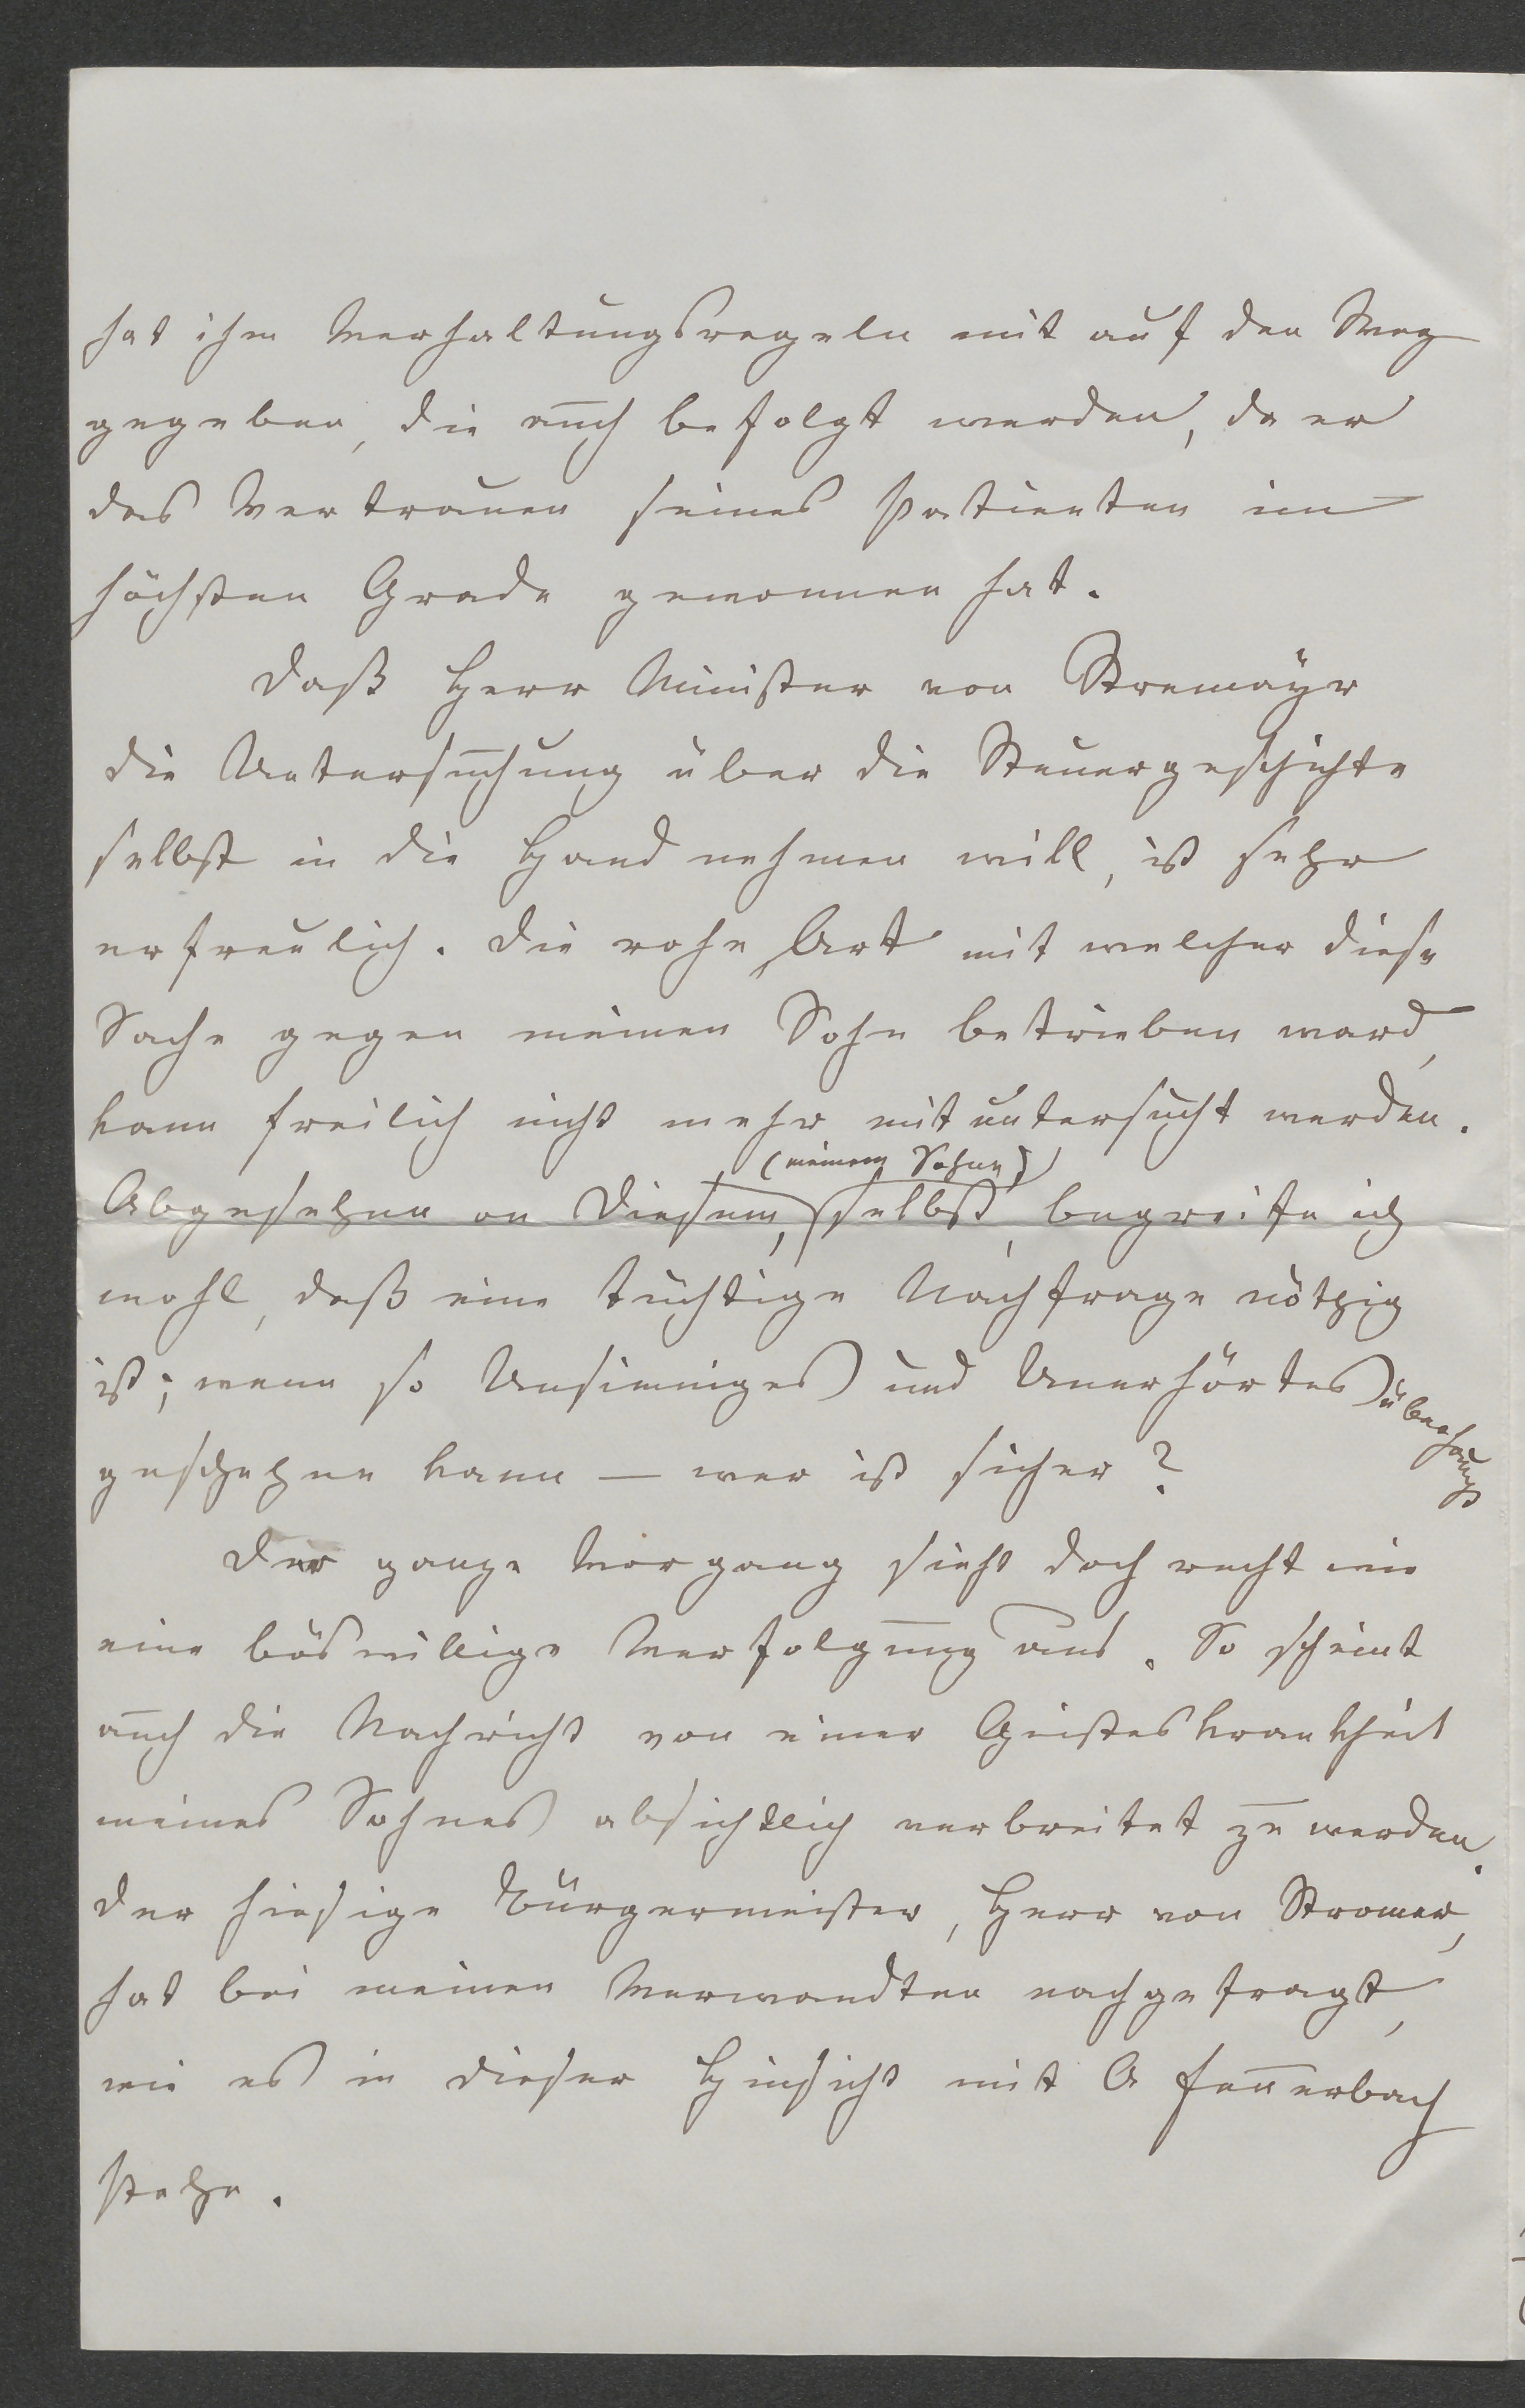 hat ihm Verhaltungsregeln mit auf den Weg
gegeben, die auch befolgt werden, da er
das Vertrauen seines Patienten im
höchsten Grade gewonnen hat.
Daß Herr Minister von Stremäyr
die Untersuchung über die Steuergeschichte
selbst in die Hand nehmen will, ist sehr
erfreulich. Die rohe Art mit welcher diese
Sache gegen meinen Sohn betrieben ward,
kann freilich nicht mehr mit untersucht werden.
(meinem Sohne)
Abgesehen von Diesem, selbst, begreife ich
wohl, daß eine tüchtige Nachfrage nöthig
ist; wenn so Unsinniges und Unerhörtes überhaupt
geschehen kann — wer ist sicher?
Der ganze Vorgang sieht doch recht wie
eine böswillige Verfolgung aus. So scheint
auch die Nachricht von einer Geisteskrankheit
meines Sohnes absichtlich verbreitet zu werden.
Der hiesige Bürgermeister, Herr von Stromer,
hat bei meinen Verwandten nachgefragt,
wie es in dieser Hinsicht mit A Feuerbach
stehe.